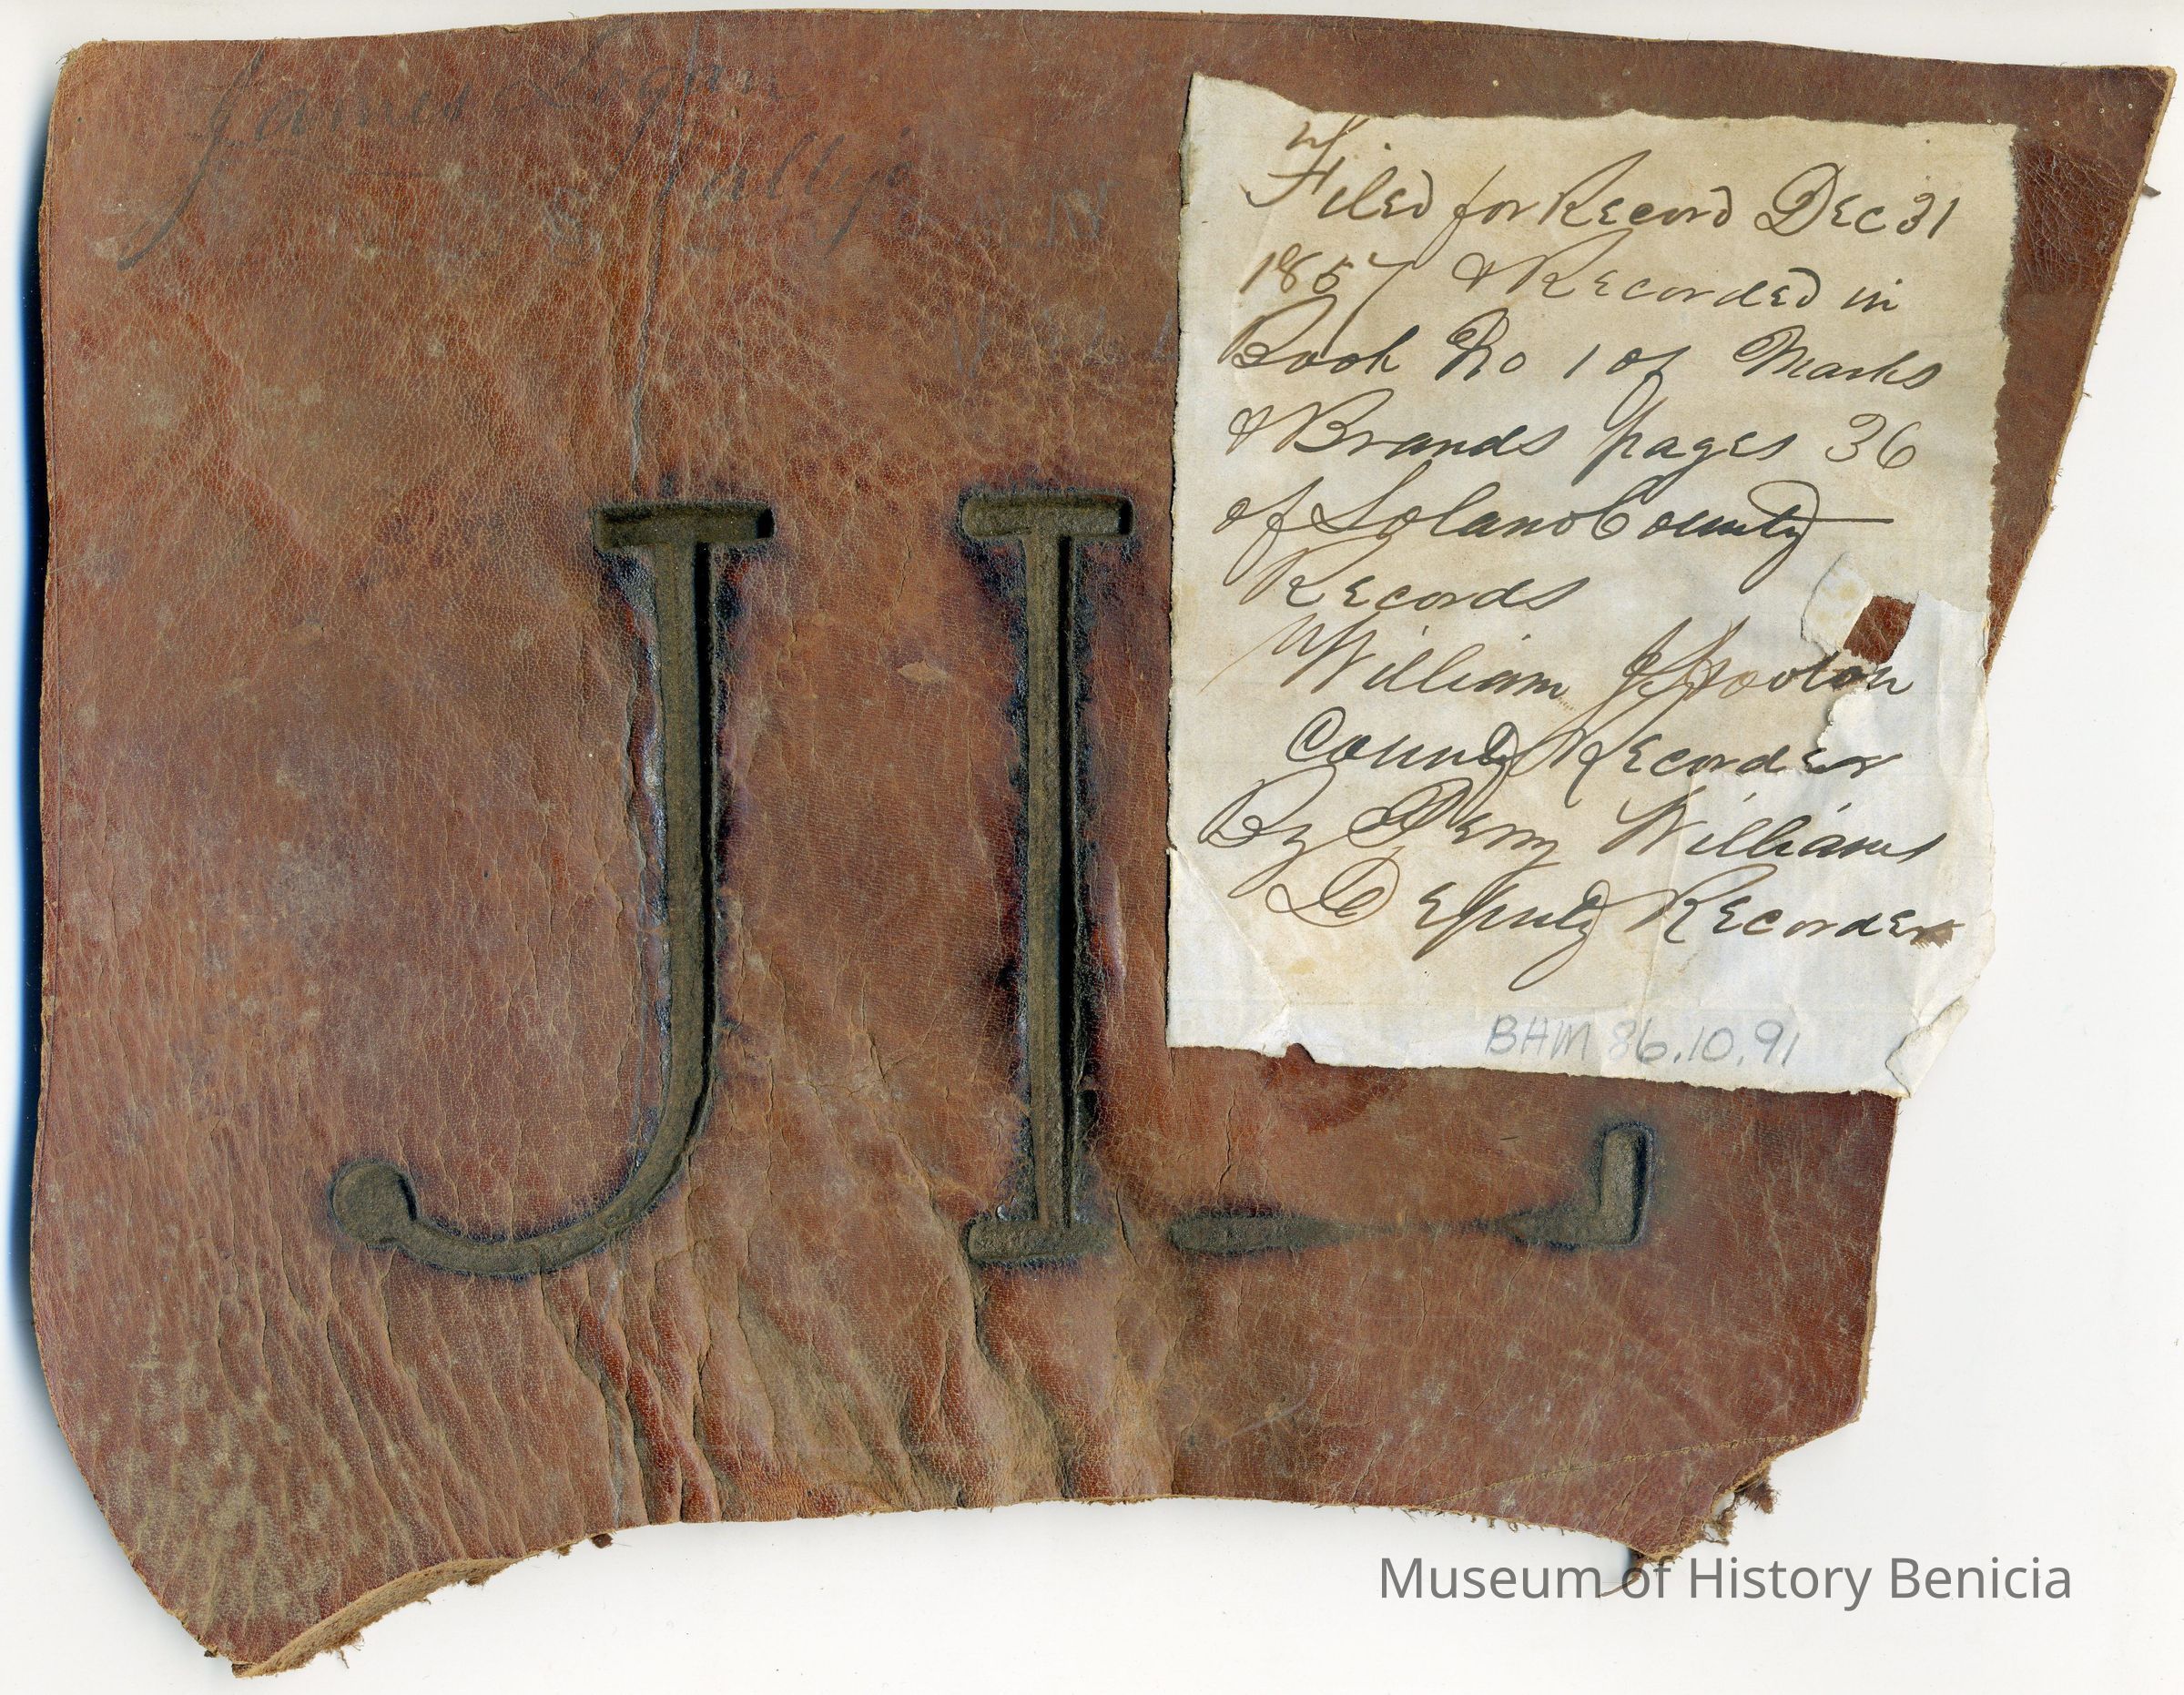 James Logan
Vallejo
J L
Filed for Record Dec 31
1857 & Recorded in
Book No 1 of Marks
& Brands pages 36
of Solano County
Records
William J Hooton
County Recorder
By Perry Williams
Deputy Recorder
BHM 86.10.91
Museum of History Benicia